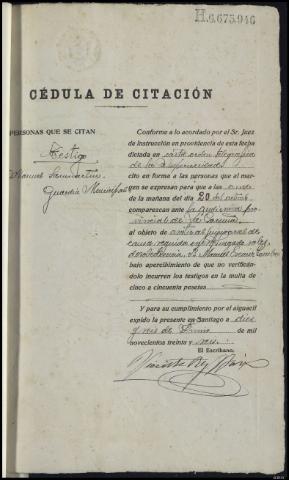 H.6.675.946
CÉDULA DE CITACIÓN
PERSONAS QUE SE CITAN
Testigo
Manuel
Guardia Municipal
Conforme a lo acordado por el Sr. Juez
de instrucción en providencia de esta fecha
dictada en carta orden telegrafica
de la Superioridad
cito en forma a las personas que al mar-
gen se expresan para que a las once
de la mañana del día 20 del actual
comparezcan ante la Audiencia pro-
vincial de la Coruña
al objeto de asistir al juicio oral de
causa seguida
Manuel
bajo apercibimiento de que no verificán-
dolo incurren los testigos en la multa de
cinco a cincuenta pesetas
Y para su cumplimiento por el alguacil
expido la presente en Santiago a diez
y seis de Junio de mil
novecientos treinta y seis.
El Escribano,
Vicente Rey